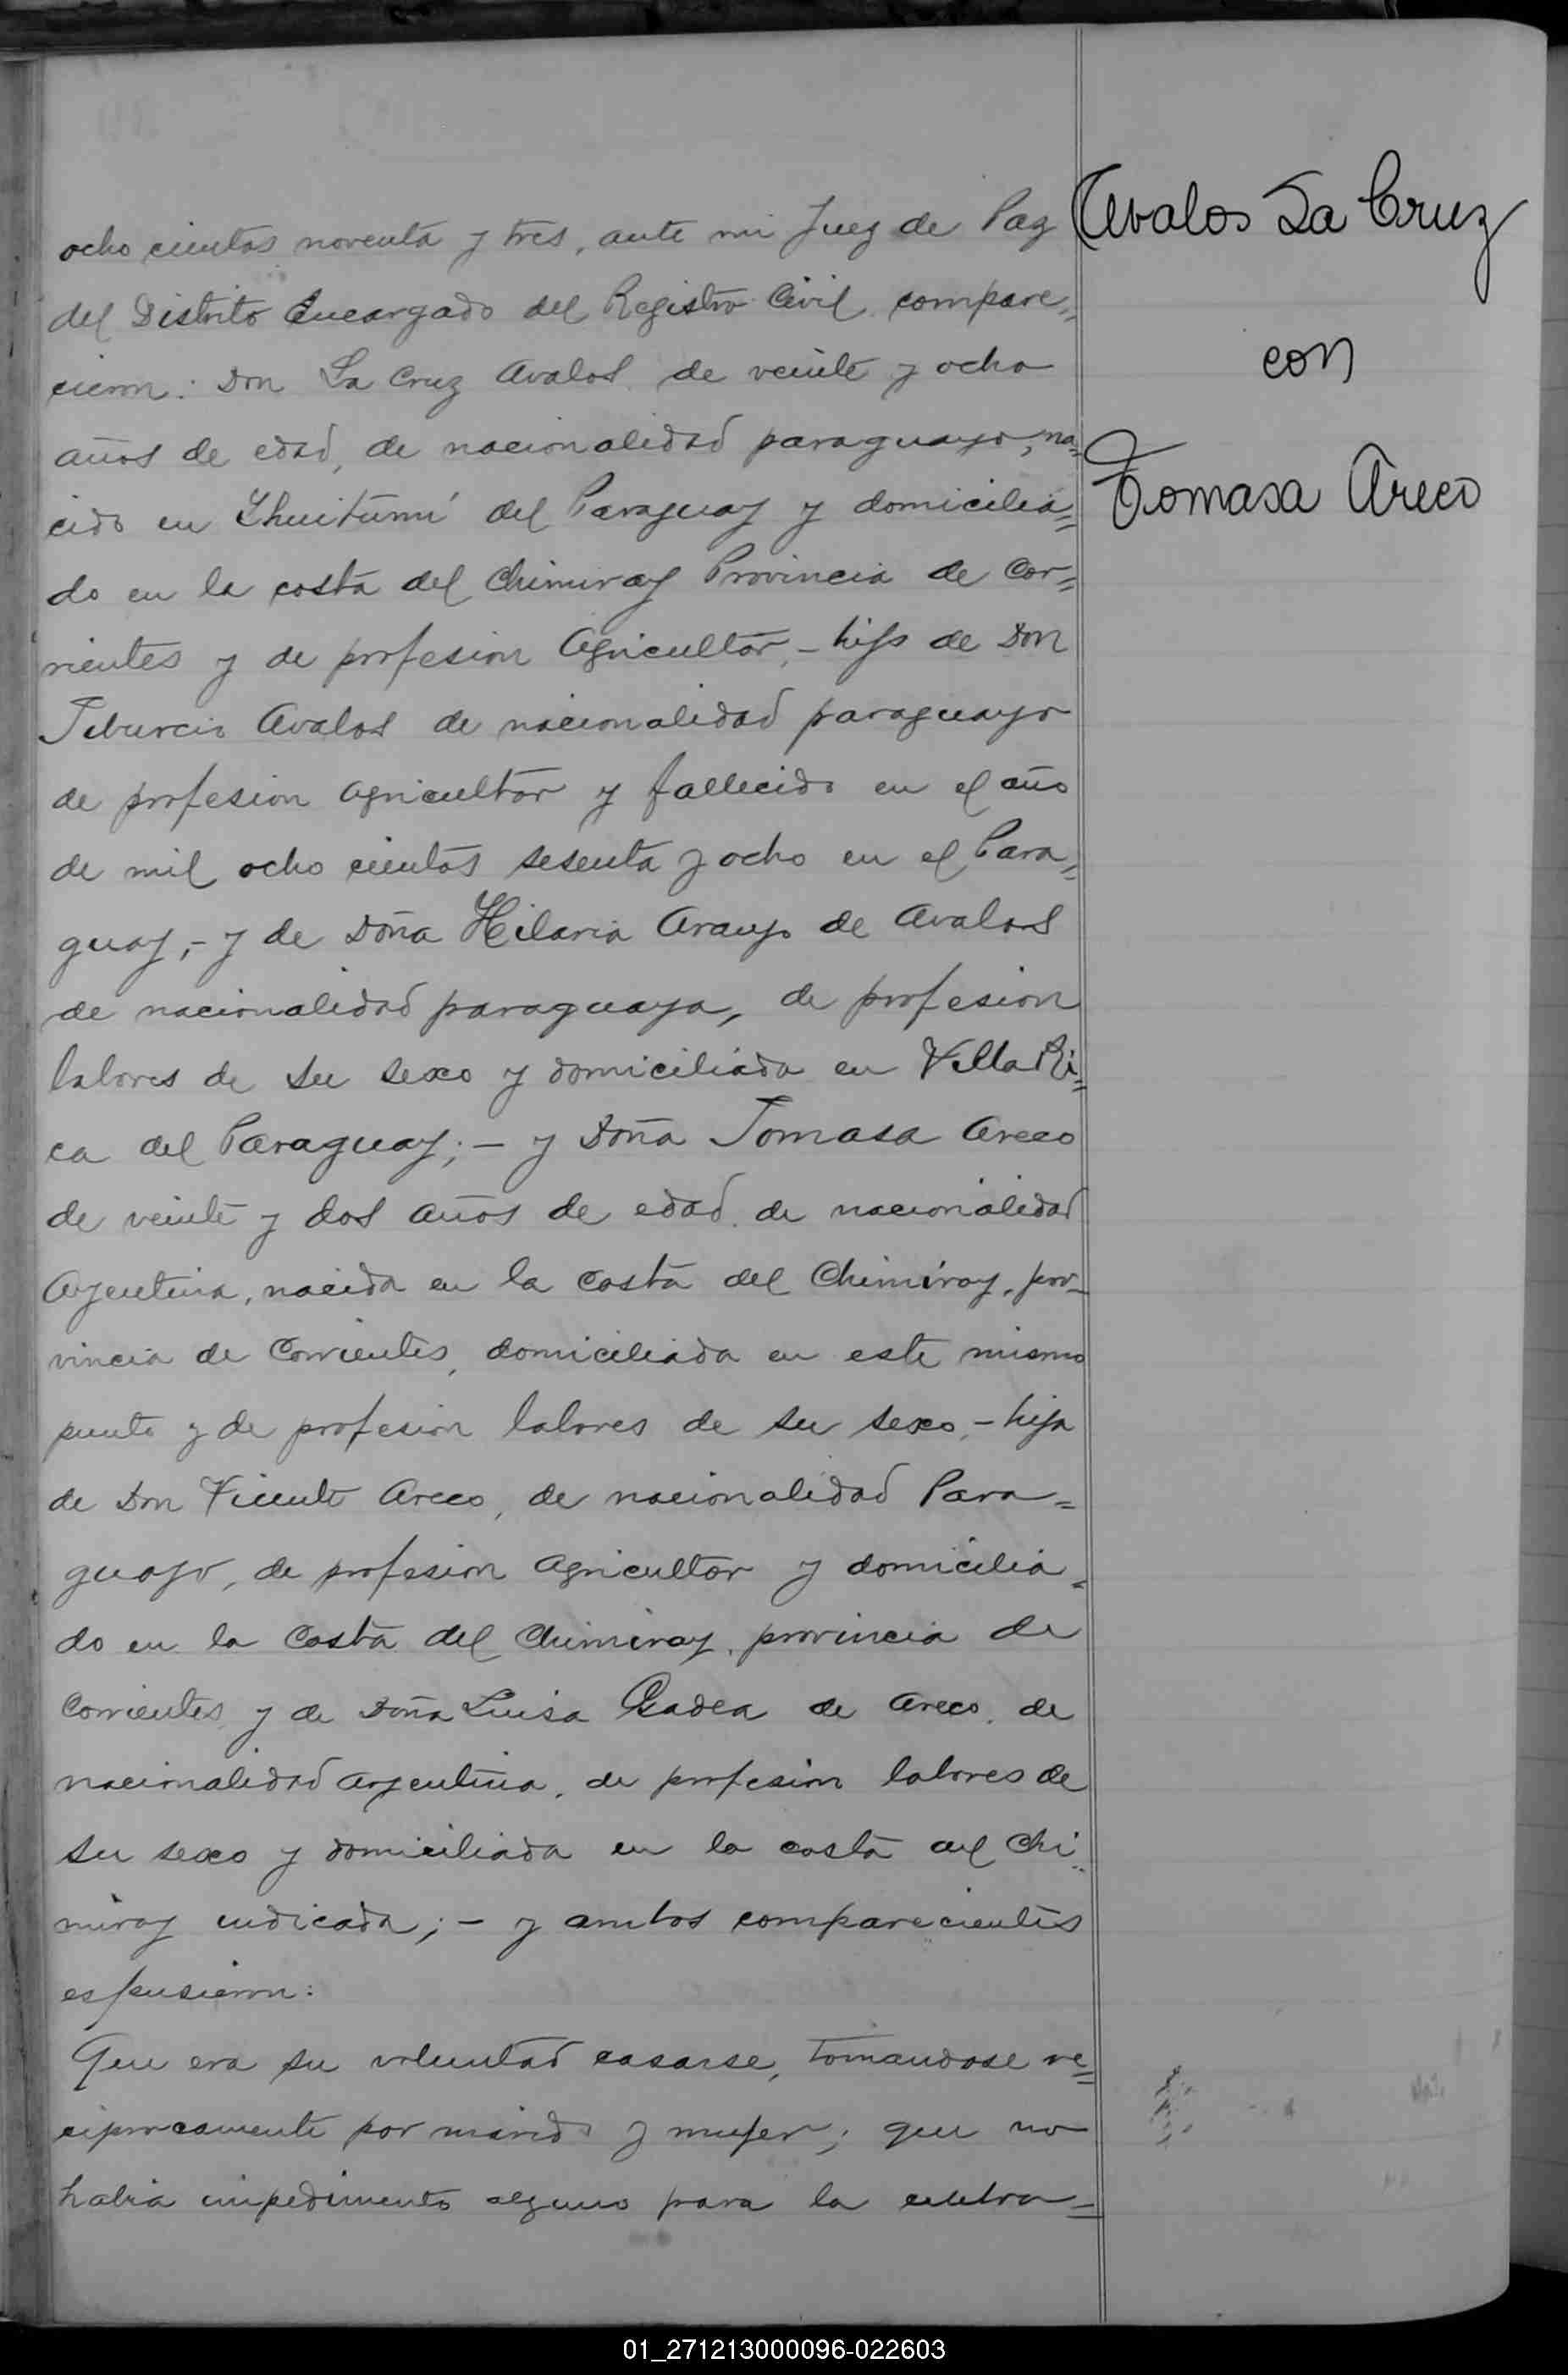 ocho cientos noventa y tres, ante mi Juez de Paz
del Distrito Encargado del Registro Civil, compare=
cieron: Don La Cruz Avalos, de veinte y ocho
años de edad, de nacionalidad paraguayo, na=
cido en Yhuitimí del Paraguay y domicilia=
do en la costa del Chimiray Provincia de Cor=
rientes y de profesion Agricultor,- hijo de Don
Tiburcio Avalos de nacionalidad paraguayo
de profesion agricultor y fallecido en el año
de mil ocho cientos sesenta y ocho en el Para=
guay,- y de Doña Hilaria Araujo de Avalos
de nacionalidad paraguaya, de profesion
labores de su sexo y domiciliada en Villa Ri=
ca del Paraguay;- y Doña Tomasa Areco
de veinte y dos años de edad, de nacionalidad
Argentina, nacida en la costa del Chimiray, pro-
vincia de Corrientes, domiciliada en este mismo
punto y de profesion labores de su sexo,- hija
de Don Vicente Areco, de nacionalidad Para=
guayo, de profesion agricultor y domicilia=
do en la Costa del Chimiray, provincia de
Corrientes, y de Doña Luisa Gadea de Areco, de
nacionalidad Argentina, de profesion labores de
su sexo y domiciliada en la costa del Chi
miray indicada;- y ambos comparecientes
espusieron:
Que era su voluntad casarse, tomandose re=
ciprocamente por marido y mujer; que no
habia impedimento alguno para la celebra=
Avalos La Cruz
con
Tomasa Areco
01_271213000096-022603